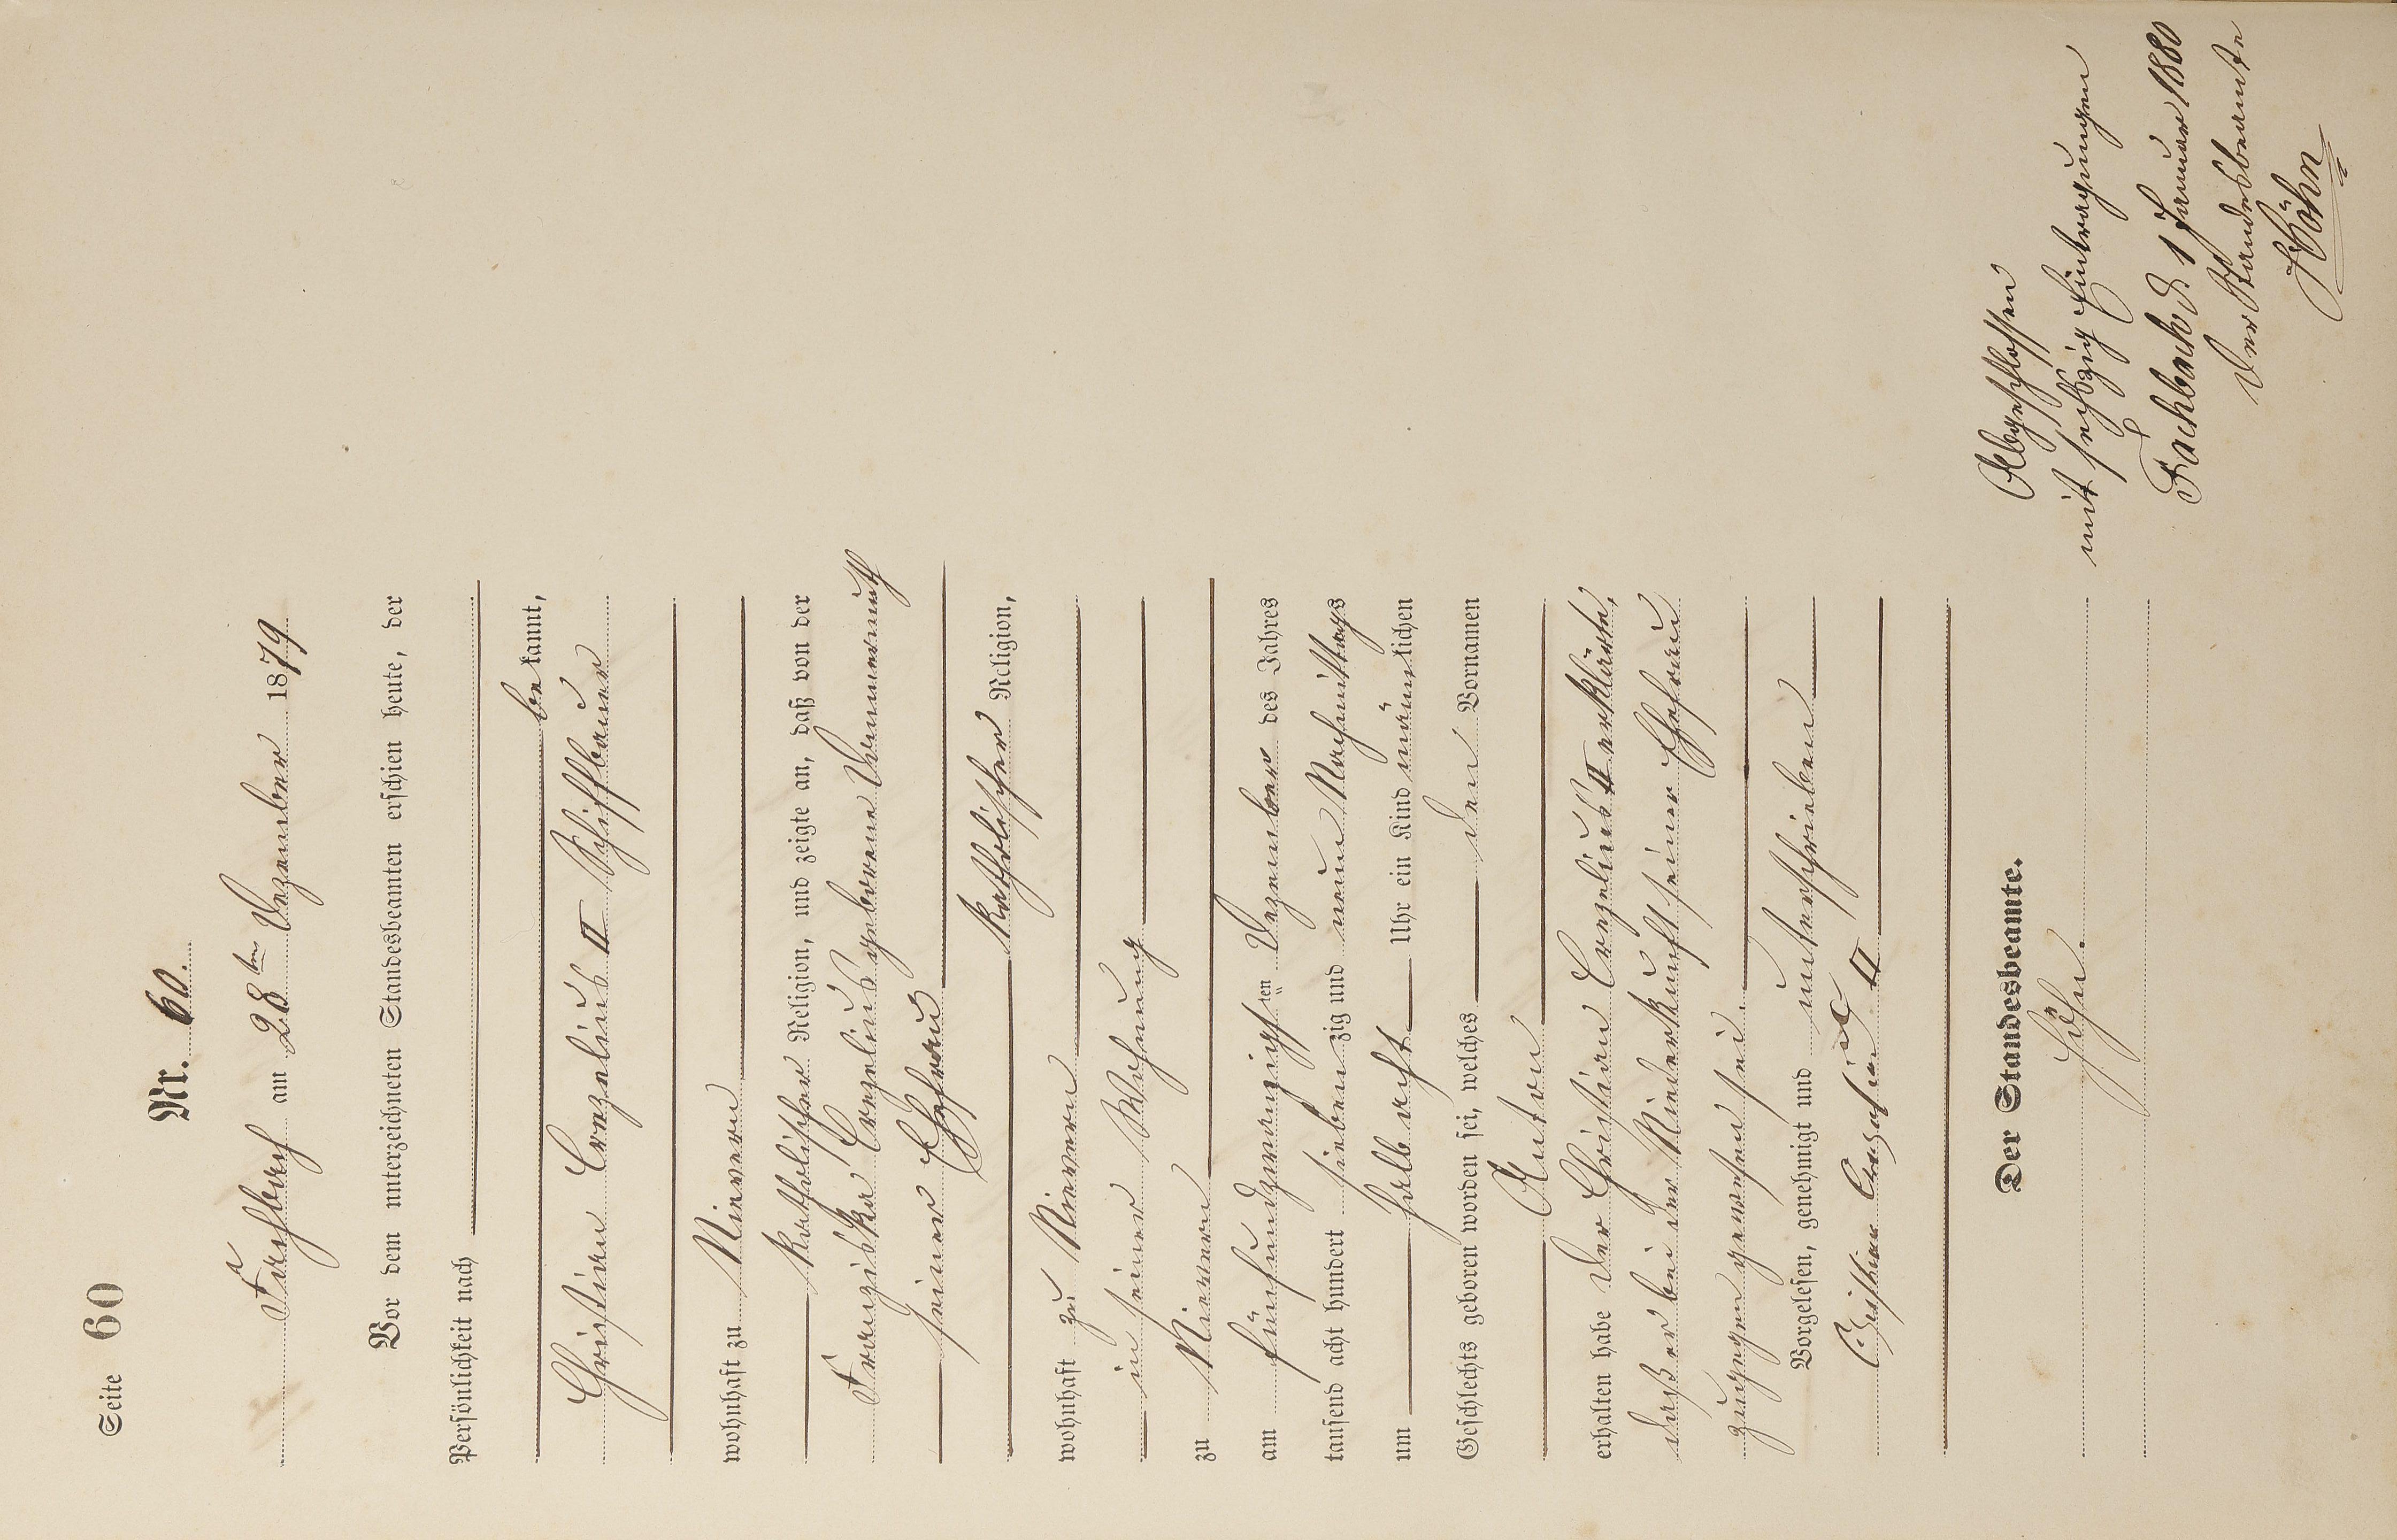 Seite 60
Nr. 60.
Fachbach am 28ten Dezember 1879
Vor dem unterzeichneten Standesbeamten erschien heute, der
Persönlichkeit nach
bekannt,
Christian Crezelius II Schiffbauer
wohnhaft zu Nievern
katholischer Religion, und zeigte an, daß von der
Franziska Crezelius geborene
seiner Ehefrau
katholischer Religion,
wohnhaft zu Nievern
in seiner Wohnung
zu Nievern
am fünfundzwanzigsten Dezember des Jahres
tausend acht hundert siebenzig und neun Nachmittags
um halb acht Uhr ein Kind männlichen
Geschlechts geboren worden sei, welches den Vornamen
Anton
erhalten habe Der Christian Crezelius II erklärte,
daß er bei der Niederkunft seiner Ehefrau
zugegen gewesen sei.
Vorgelesen, genehmigt und unterschrieben
Christian Crezelius II
Der Standesbeamte.
Höhn.
Abgeschlossen
mit sechszig Eintragungen
Fachbach d 1 Januar 1880
Der Standesbeamte
Höhn